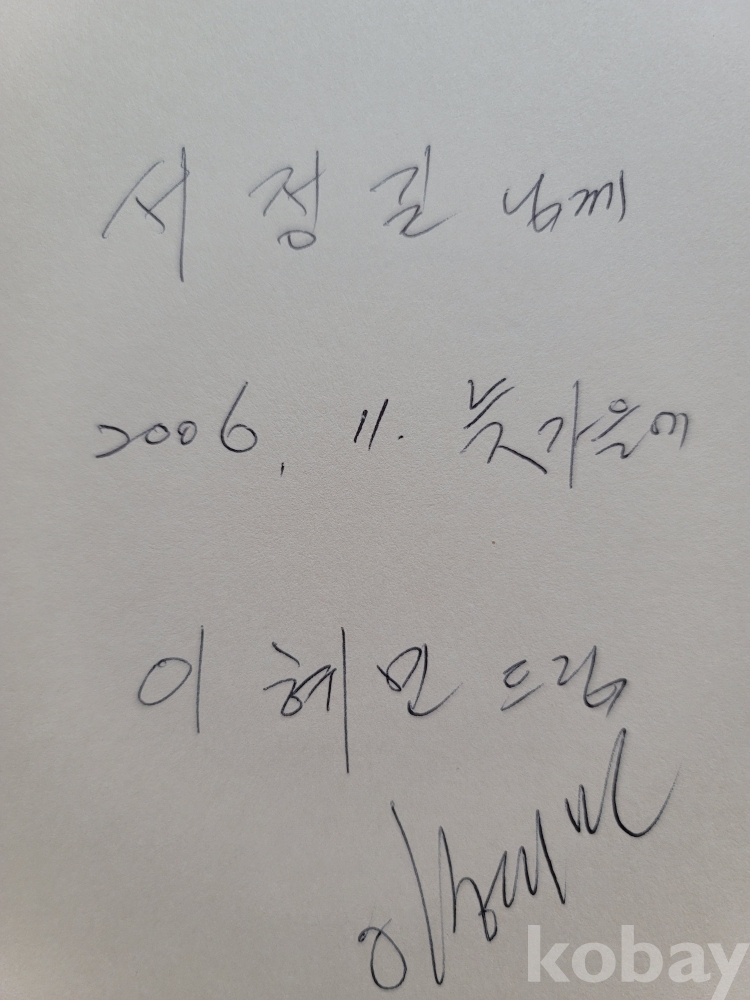 서정길 님께
2006. 11. 늦가을에
이혜민 드림
이혜민
kobay